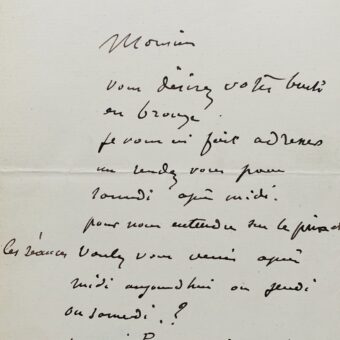 Monsieur
vous désirez votre buste
en bronze.
je vous ai fait adresser
un rendez vous pour
samedi après midi.
pour nous entendre sur le prix et
les séances Voulez vous venir après
midi aujourdhui ou jeudi
ou samedi.?